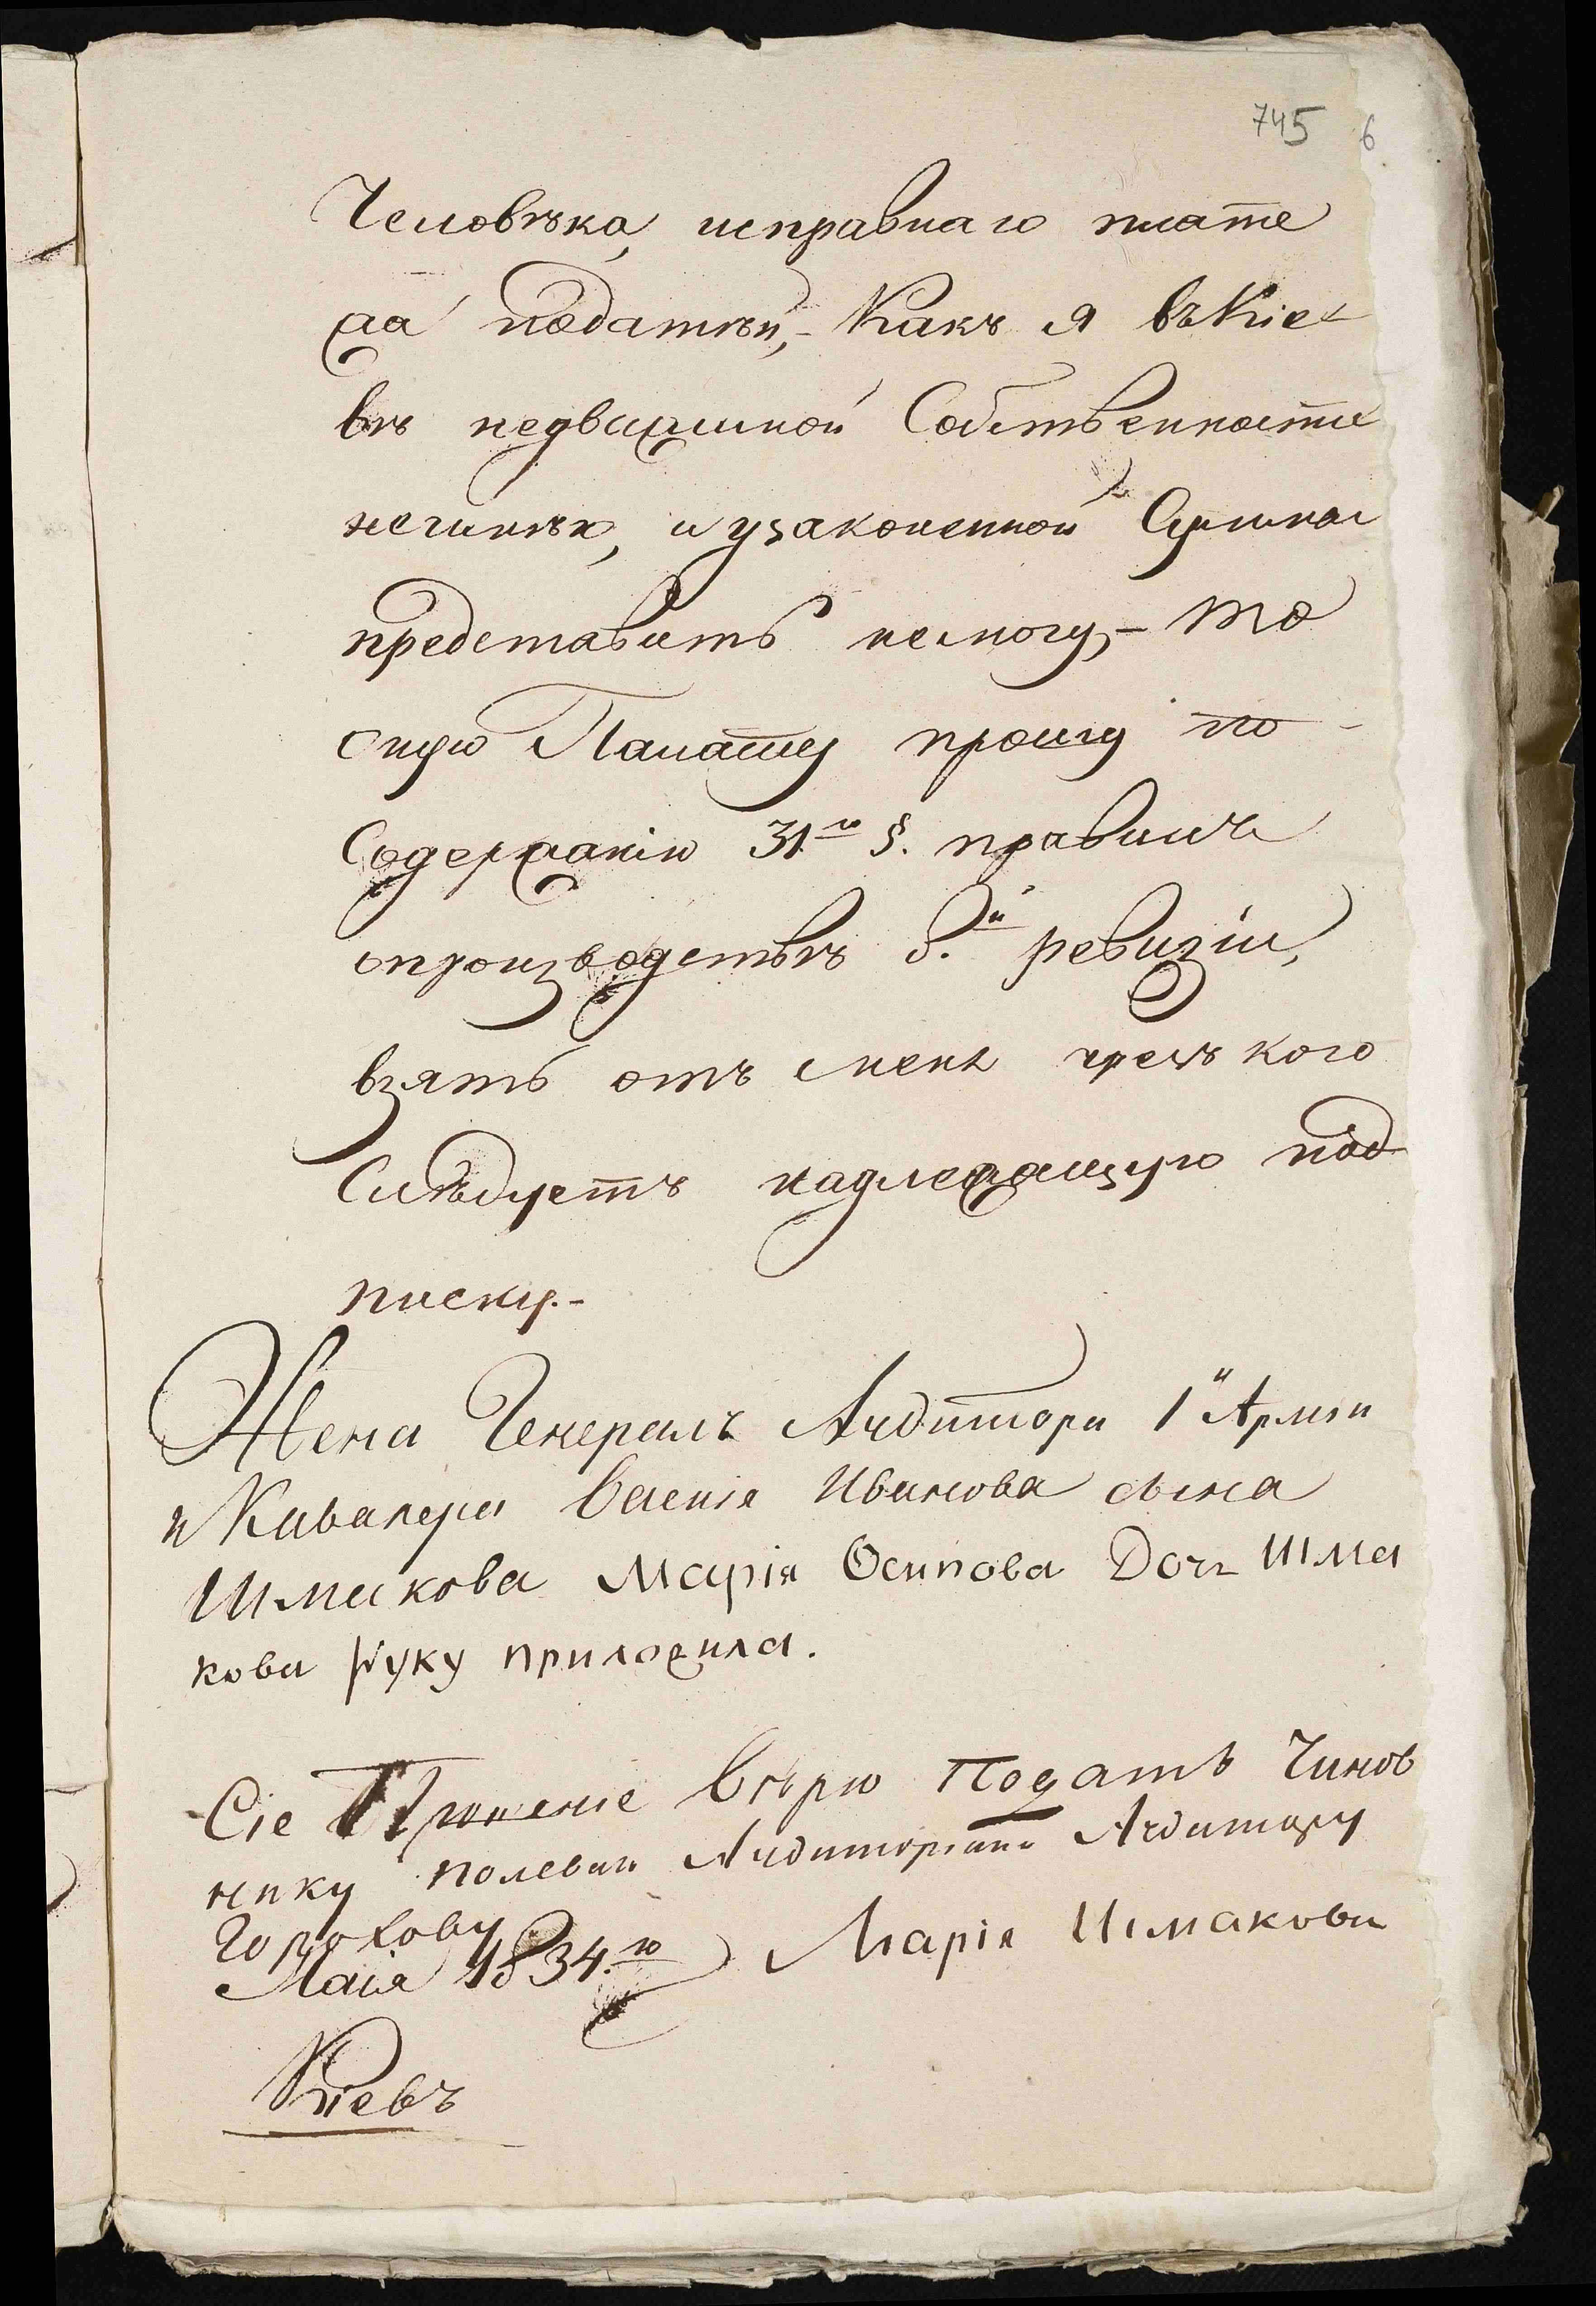 745 6
Человѣка, исправнаго плате
жа податѣй,- Какъ я въ Кіе-
вѣ недвижимой Собственности
неимѣю, и узаконенной Суммы
представить немогу,- то
оную Палату прошу по-
Содержанію 31го §. правилъ
опроизводствѣ 8.й ревизіи,
взять отъ меня чрезъ кого
Слѣдуетъ надлежащую под
писку.-
Жена Генералъ Аудитора 1й Арміи
и Кавалера Василія Иванова сына
Шмакова Марія Осипова Дочь Шма
кова руку приложила.
Сіе Прошеніе вѣрю Подать Чинов
нику полеваго Аудиторіата Аудитору
Горохову
Маія 1834.го Марія Шмакова
Кіевъ